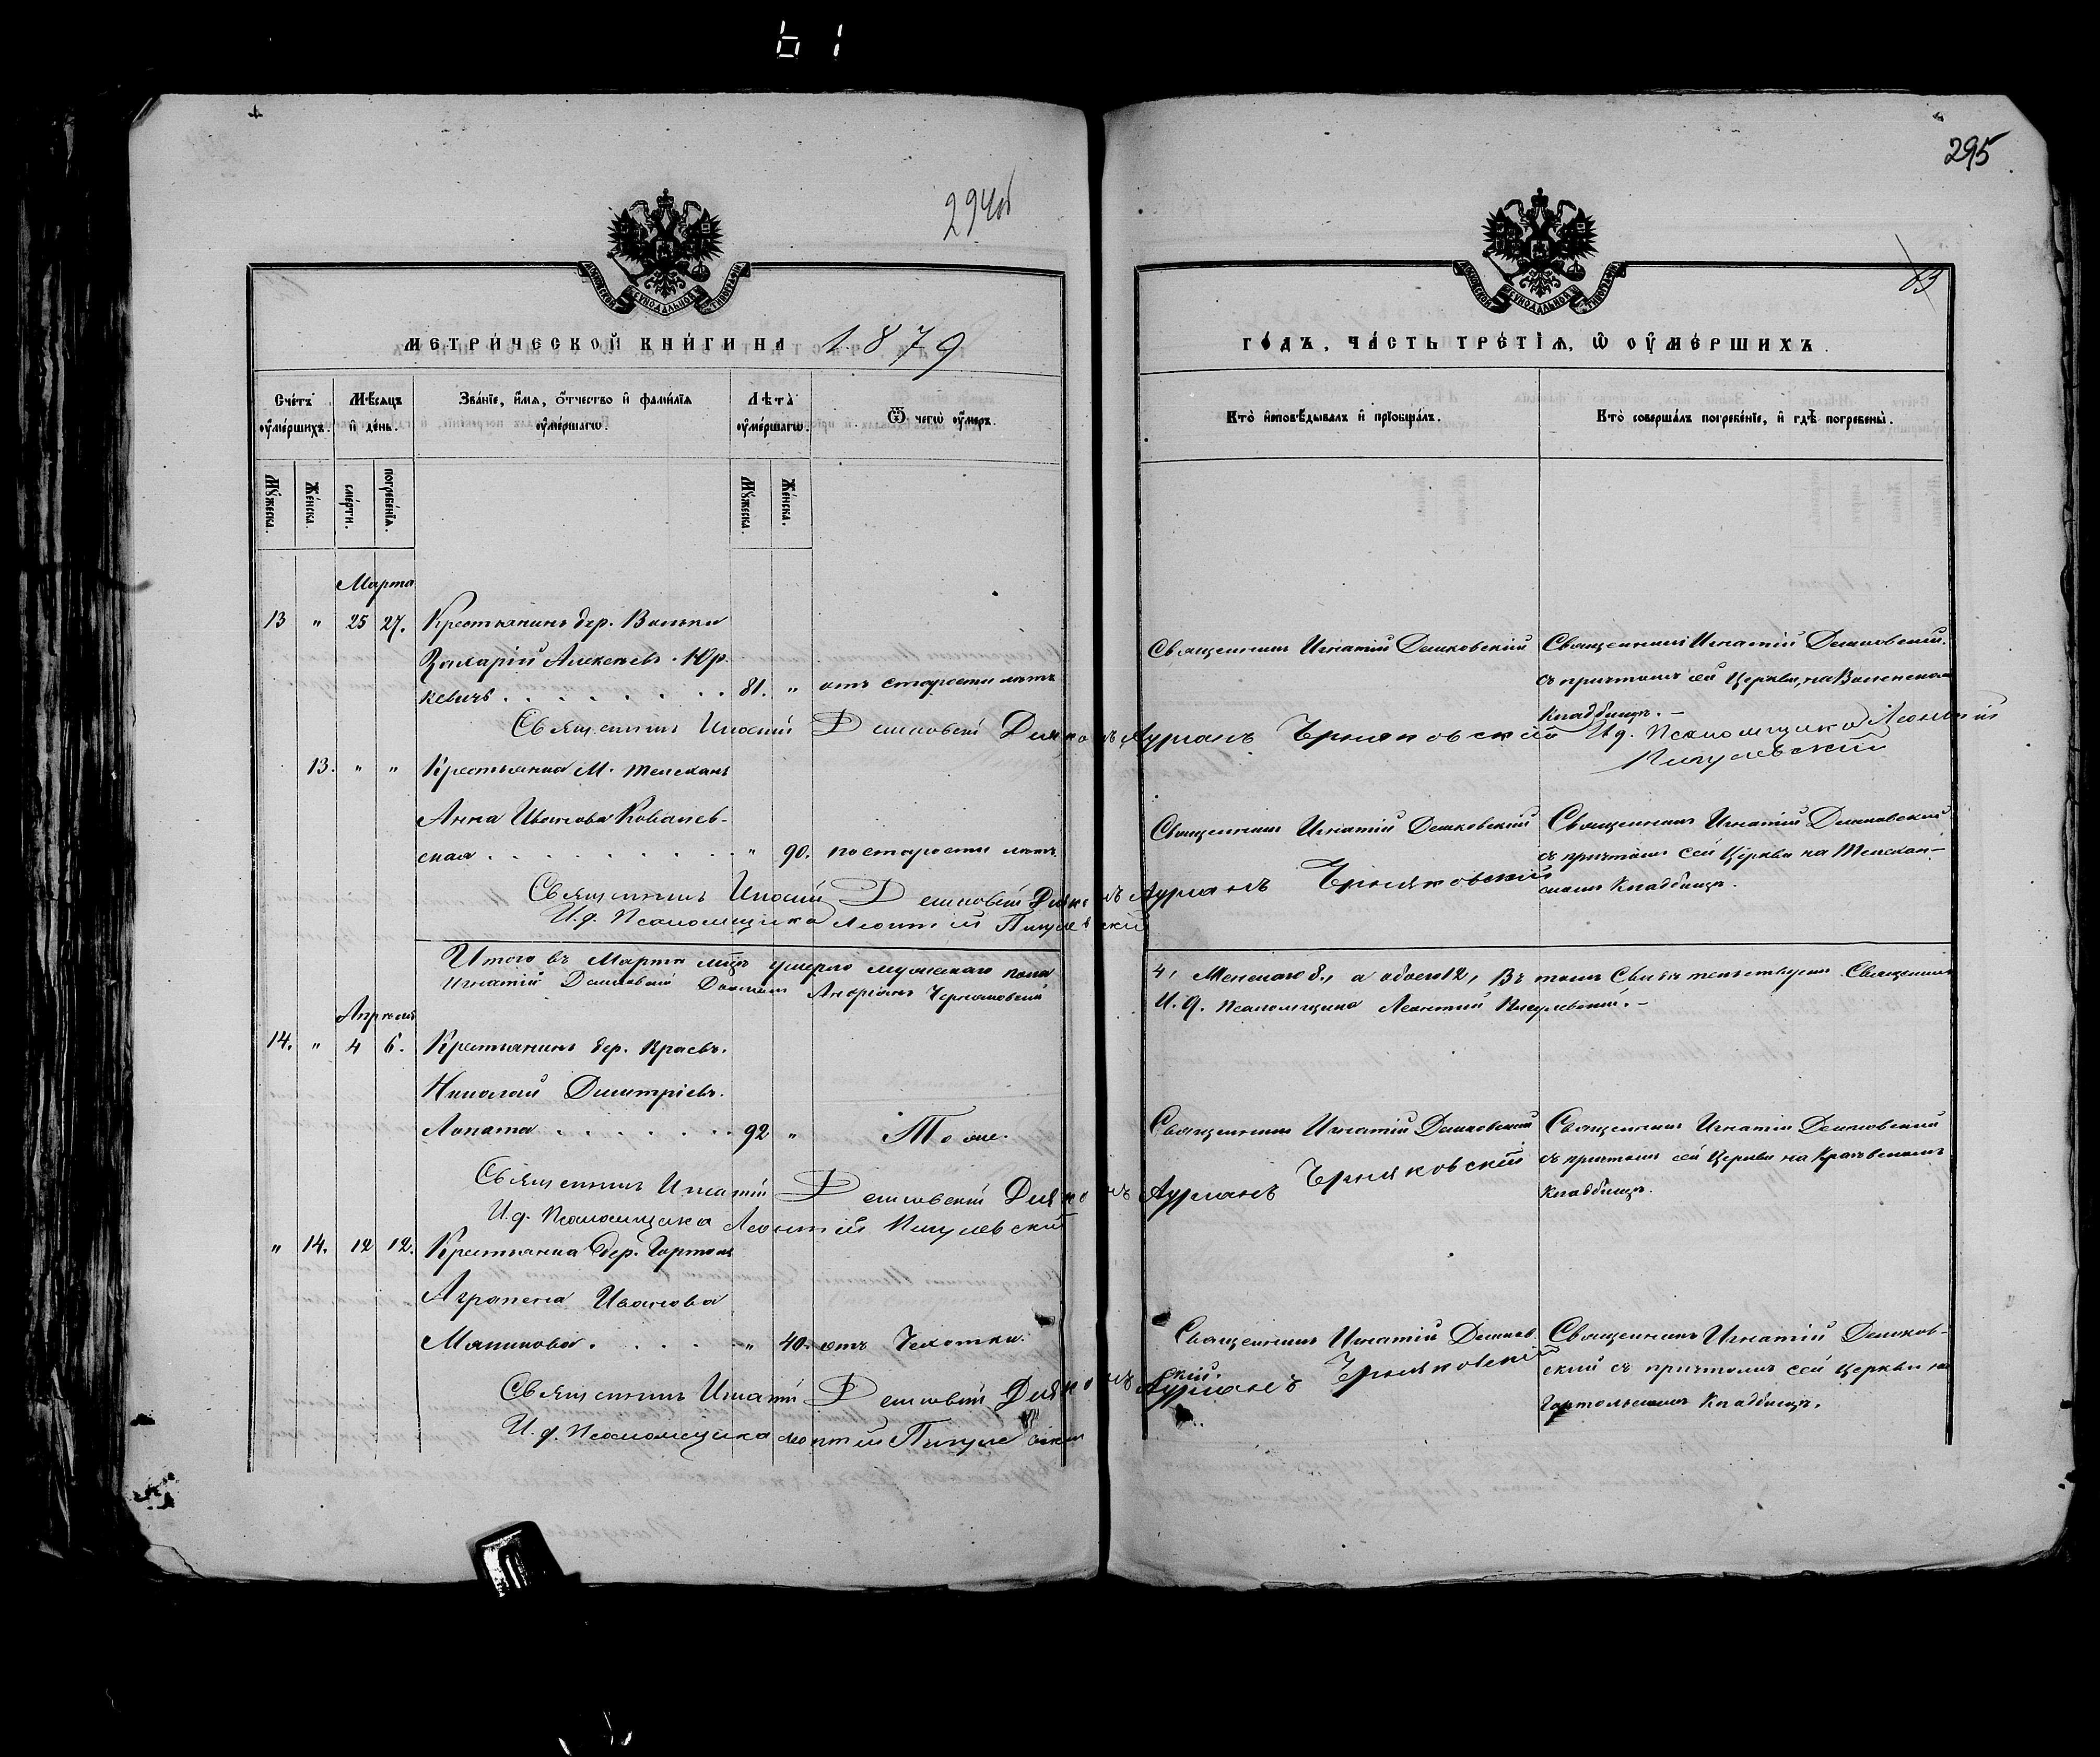 61
294об
295
МОСКОВСКОЙ СѴНОДАЛЬНОЙ ТИПОГРАФІИ
МОСКОВСКОЙ СѴНОДАЛЬНОЙ ТИПОГРАФІИ
МЕТРИЧЕСКОЙ КНИГИ НА 1879
ГОДЪ, ЧАСТЬ ТРЕТІѦ, Ѡ ОУМЕРШИХЪ.
Счетъ оумершихъ.
Мѣсяцъ и день.
Званіе, имя, отчество и фамилія оумершагѡ.
Лѣта оумершагѡ.
Ѿ чегѡ оумеръ.
Кто исповѣдывалъ и пріобщалъ.
Кто совершалъ погребеніе, и гдѣ погребены.
Мужеска.
Женска.
смерти.
погребенія.
Мужеска
Женска.
Марта
13 " 25 27. Крестьянинъ дер.
Захарій Алексѣевъ Юр-
кевичъ . . . . . . . 81. " отъ старости лѣтъ
Священникъ Игнатій Демковскій
Священникъ Игнатій Демковскій
съ причтомъ сей Церкви, на
Кладбищѣ. –
Священникъ Игнатій Демковскій Дьяконъ Адріанъ Черняковскій И. д. Псаломщика Леонтій
Пигулевскій
13. " " Крестьянка М. Телеханъ
Анна Иванова Ковалев-
ская . . . . . . . . " 90. по старости лѣтъ.
Священникъ Игнатій Демковскій
Священникъ Игнатій Демковскій
съ причтомъ сей Церкви на Телехан-
скомъ Кладбищѣ.
Священникъ Игнатій Демковскій Дьяконъ Адріанъ Черняковскій
И. д. Псаломщика Леонтій Пигулевскій
Итого въ Мартѣ мцѣ умерло мужескаго пола 4, Женскаго 8, а обоего 12, Въ томъ Свидѣтельствуемъ Священникъ
Игнатій Демковскій Дьяконъ Андріанъ Черняковскій И. д. Псаломщика Леонтій Пигулевскій. –
Апрѣля
14. " 4 6. Крестьянинъ дер. Краевъ.
Николай Димитріевъ.
Лопата . . . . . . . 92 " То же.
Священникъ Игнатій Демковскій
Священникъ Игнатій Демковскій
съ причтомъ сей Церкви на Краевскомъ
Кладбищѣ.
Священникъ Игнатій Демковскій Дьяконъ Адріанъ Черняковскій
И. д. Псаломщика Леонтій Пигулевскій
" 14. 12 12. Крестьянка дер. Гортоль
Агрипена Иванова
Малинова . . . . . " 40. отъ Чехотки.
Священникъ Игнатій Демков-
скій.
Священникъ Игнатій Демков-
скій съ причтомъ сей Церкви на
Гортольскомъ Кладбищѣ.
Священникъ Игнатій Демковскій Дьяконъ Адріанъ Черняковскій
И. д. Псаломщика Леонтій Пигулевскій